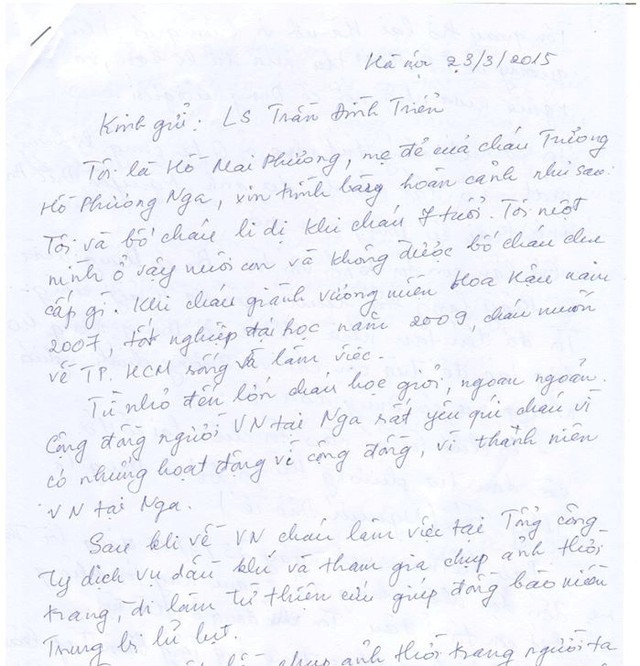 Hà nội 23/3/2015
Kính gửi: LS Trần Đình Triển
Tôi là Hồ Mai Phương, mẹ đẻ của cháu Trương
Hồ Phương Nga, xin trình bày hoàn cảnh như sau:
Tôi và bố cháu li dị khi cháu 7 tuổi. Tôi một
mình ở vậy nuôi con và không được bố cháu chu
cấp gì. Khi cháu giành vương miện Hoa Hậu năm
2007, tốt nghiệp đại học năm 2009, cháu muốn
về TP. HCM sống và làm việc.
Từ nhỏ đến lớn cháu học giỏi, ngoan ngoãn.
Cộng đồng người VN tại Nga rất yêu quí cháu vì
có những hoạt động về cộng đồng, vì thanh niên
VN tại Nga.
Sau khi về VN cháu làm việc tại Tổng công
ty dịch vụ dầu khí và tham gia chụp ảnh thời
trang, đi làm từ thiện cứu giúp đồng bào miền
Trung bị lũ lụt.
chụp ảnh thời trang người ta